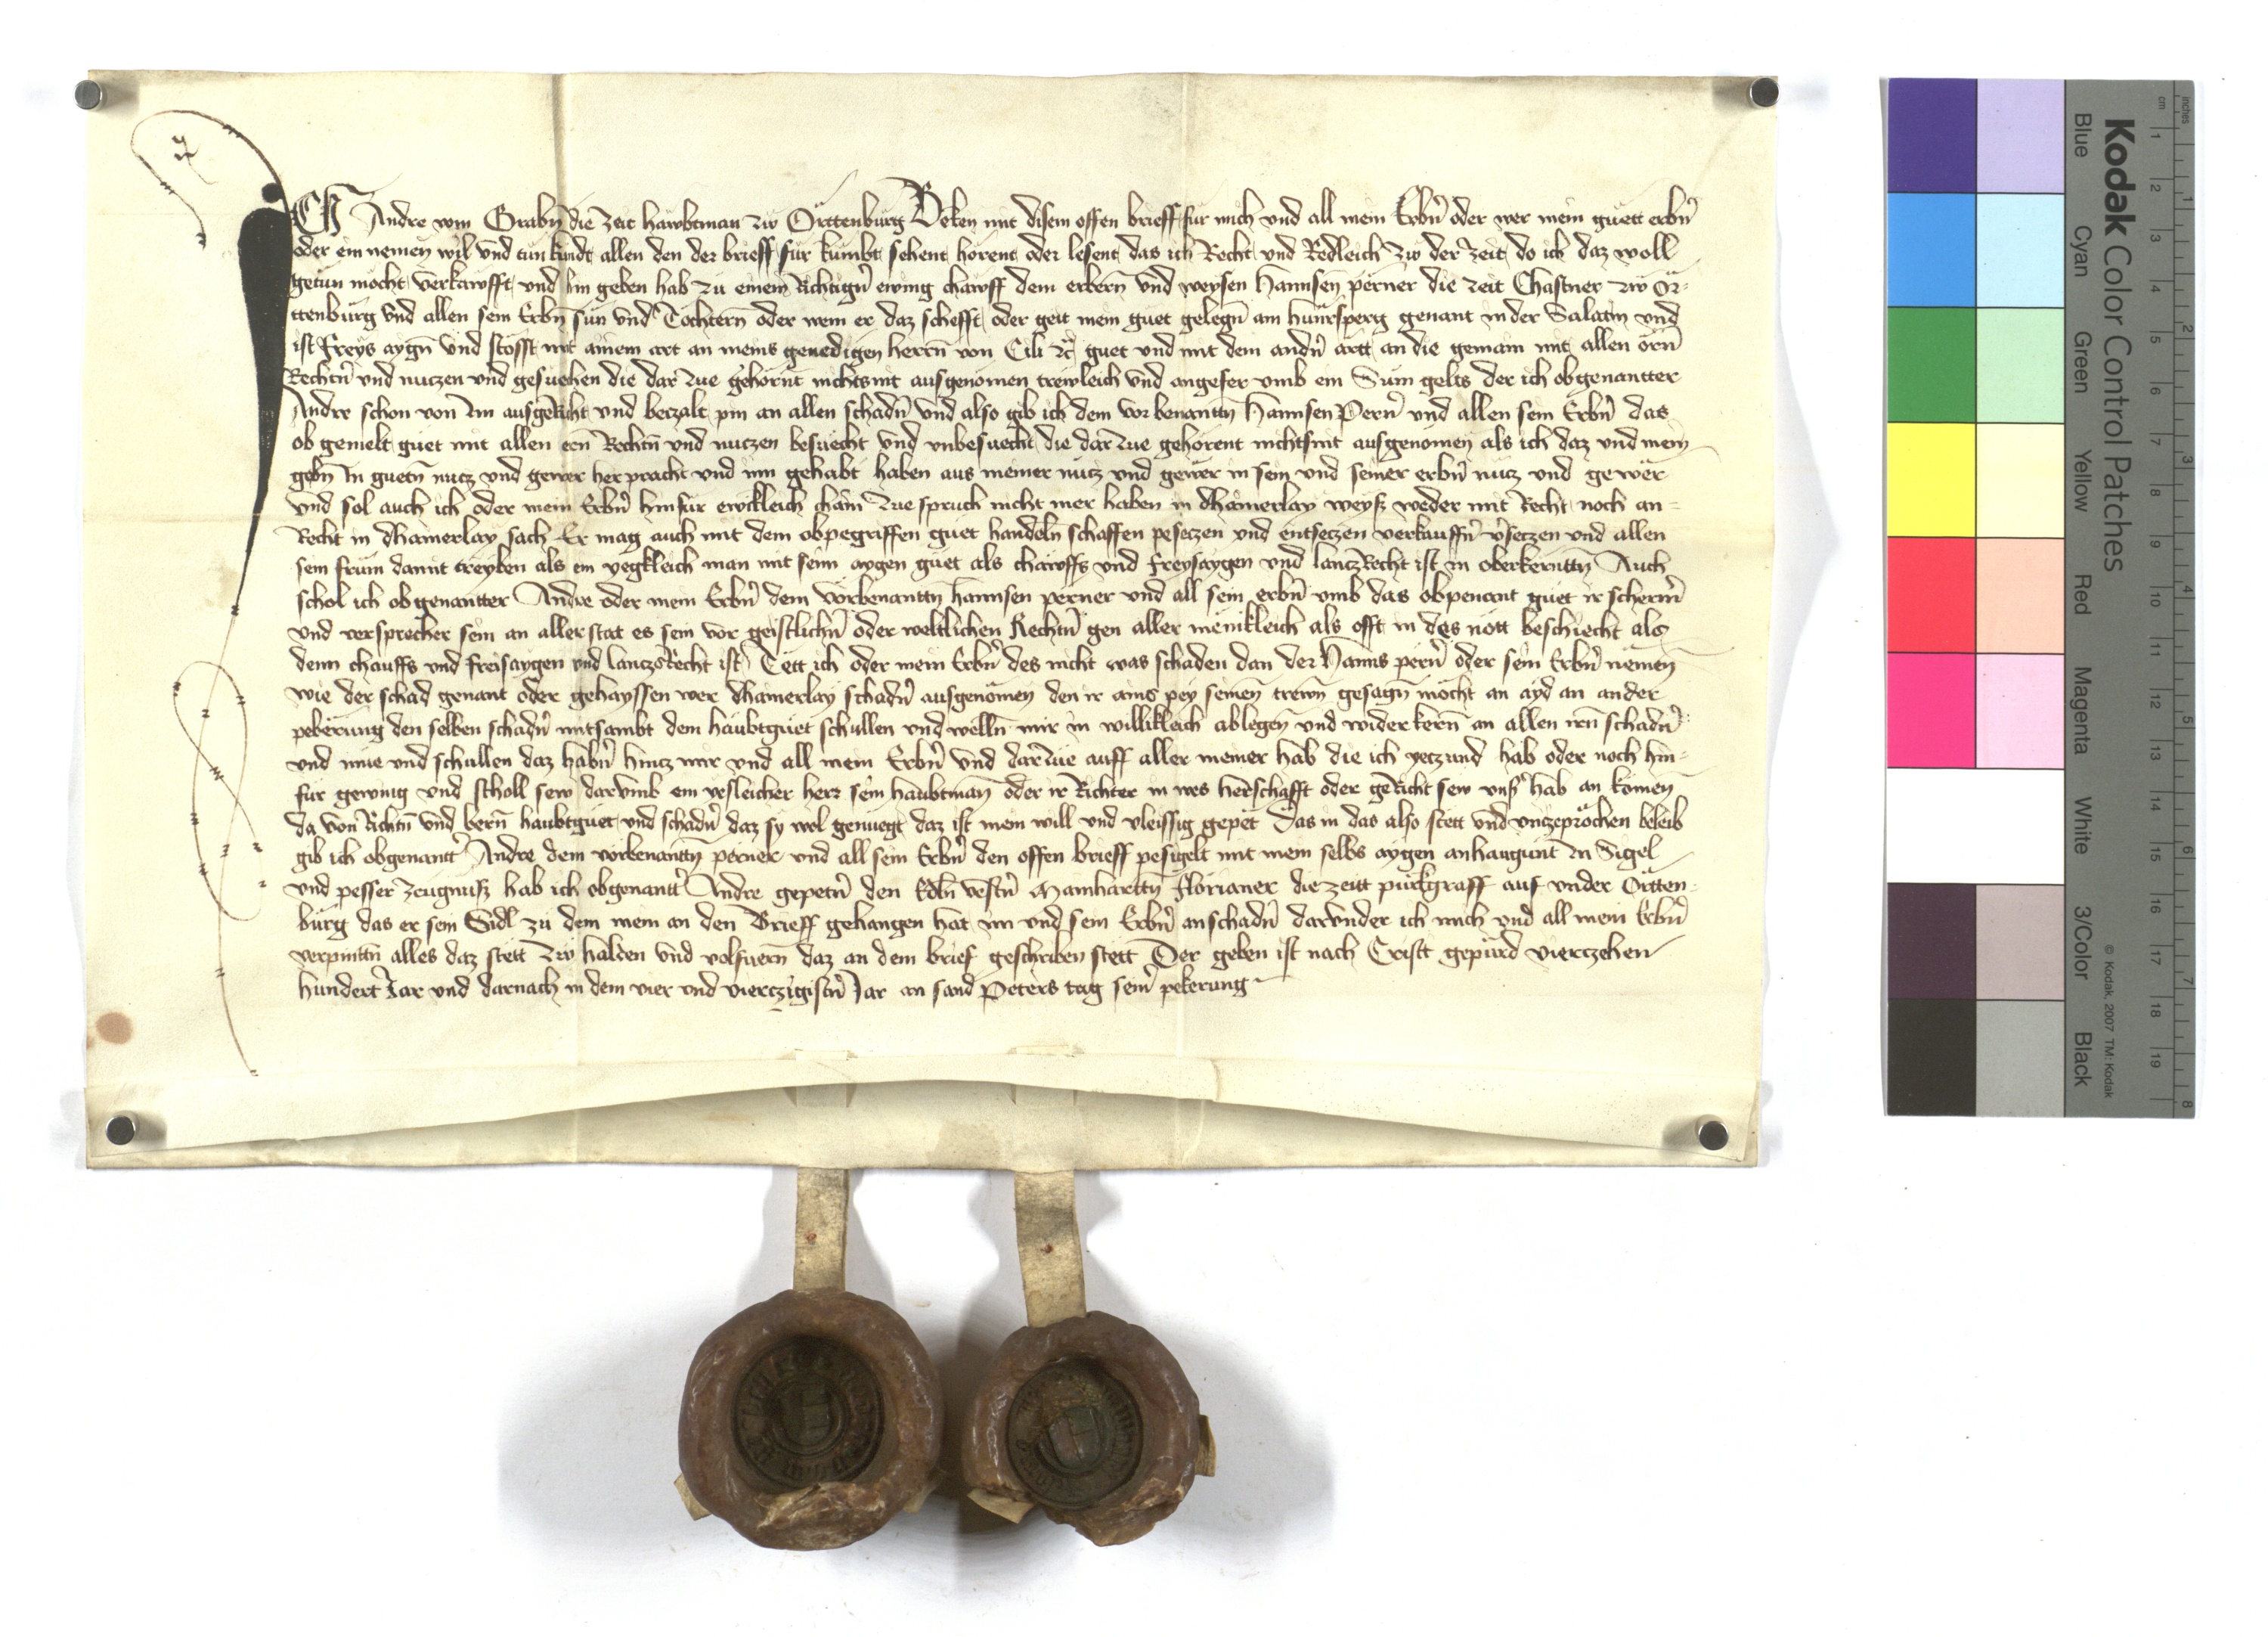 ICH Andre vom Grabn̄ die zeit hawbtman zw Orttenburg Beken mit disem offen brieff fur mich vnd all mein Erbn̄ oder wer mein guett erbn̄
oder ein nemen wil vnd tun kundt allen den der brieff fur kumbt sehent horent oder lesent das ich Recht vnd Redleich zw der zeit do ich daz woll
getun mocht verkawfft vnd Im geben hab zu einem Richtign̄ ewing chawff dem erbern̄ vnd weysen Hannsen perner die zeit Chastner zw Or-
ttenburg vnd allen sein Erbn̄ sün vnd Tochtern̄ oder wem er daz schefft oder geit mein guet gelegn̄ am hunrsperg genant in der Salatin vnd
ist Freys aygn̄ vnd stosst mit ainem art an meins genedigen herrn̄ von Cili rc̄ guet vnd mit dem andn̄ artt an die gemain mit allen örn̄
Rechtn̄ vnd nuczen vnd gesuechen die dar zue gehornt nichtsmit ausgenomen trewleich vnd angefer vmb ein Sum gelts der ich obgenantter
Andre schon von Im ausgericht vnd beczalt pin an allen schadn̄ vnd also gib ich dem vor benanttn̄ Hannsen Perner vnd allen sein Erbn̄ das
ob gemelt guet mit allen ern̄ Rechtn̄ vnd nuczen besuecht vnd vnbesuecht die dar zue gehorent nichtsmit ausgenomen als ich daz vnd mein
gebn̄ In guetn̄ nucz vnd gewer her pracht vnd inn gehabt haben aus meiner nucz vnd gewer in sein vnd seiner erbn̄ nucz vnd gewer
vnd sol auch ich oder mein Erbn̄ hinfur ewikleich chain zue spruch nicht mer haben in dhainerlay weyß weder mit Recht noch an-
Recht in dhainerlay sach Er mag auch mit dem obpegriffen guet handeln̄ schaffen peseczen vnd entseczen verkauffn̄ v̄seczen vnd allen
sein frum damit treyben als ein yegkleich man mit seim aygen guet als chawffs vnd freysaygen vnd lanczRecht ist in oberkernttn̄ Auch
schol ich obgenantter Andre oder mein Erbn̄ dem vorbenanttn̄ hannsen perner vnd all sein erbn̄ vmb das obpenant guet ir scherm̄
vnd versprecher sein an aller stat es sein vor geistlichn̄ oder weltlichen Rechtn̄ gen aller menikleich als offt in des nott beschiecht als
denn chauffs vnd freisaygen vnd lanczsRecht ist Tett ich oder mein Erbn̄ des nicht was schaden dan der Hanns pern̄ oder sein Erbn̄ nemen
wie der schad genant oder gehayssen wer dhainerlay schadn̄ ausgenomen den ir ains pey seinen trewn̄ gesagn̄ mocht an ayd an ander
peberung den selben schadn̄ mitsambt dem haubtguet schullen vnd welln̄ mir in willikleich ablegen vnd widerkern̄ an allen irn̄ schadn̄
vnd mue vnd schullen daz habn̄ hincz mir vnd all mein Erbn̄ vnd darzue auff aller meiner hab die ich yeczund hab oder noch hin-
fur gewinig vnd scholl sew darvmb ein yesleicher herr sein haubtman oder ir Richter in wes herschafft oder gericht sew vnß hab an komen
da von Richtn̄ vnd wern̄ haubtguet vnd schadn̄ daz sy wol genuegt daz ist mein will vnd vleissig gepet Das in das also stett vnd vnczeprochen beleib
gib ich obgenantt̄ Andre dem vorbenanttn̄ perner vnd all sein Erbn̄ den offen brieff pesigelt mit mein selbs aygen anhangunt In Sigel
vnd pesser zeugnusz hab ich obgenantt̄ Andre gepetn̄ den Edln̄ vestn̄ Mainharttn̄ Florianer die zeitt purkgraff auf vnder Ortten-
burg das er sein Sidl zu dem mein an den Brieff gehangen hat im vnd sein Erbn̄ anschadn̄ darvnder ich mich vnd all mein Erbn̄
verpinttn̄ alles daz stett zw halden vnd volfuern̄ daz an dem brief geschriben stett Der geben ist nach Cristt gepurd vierczehen
hundert Jar vnd darnach in dem vier vnd vierczigistn̄ Jar an sand Peters tag sein̄ pekerung
Kodak Color Control Patches
Blue Cyan Green Yellow Red Magenta White 3/Color Black
© Kodak, 2007 TM: Kodak
cm 1 2 3 4 5 6 7 8 9 10 11 12 13 14 15 16 17 18 19
inches 1 2 3 4 5 6 7 8